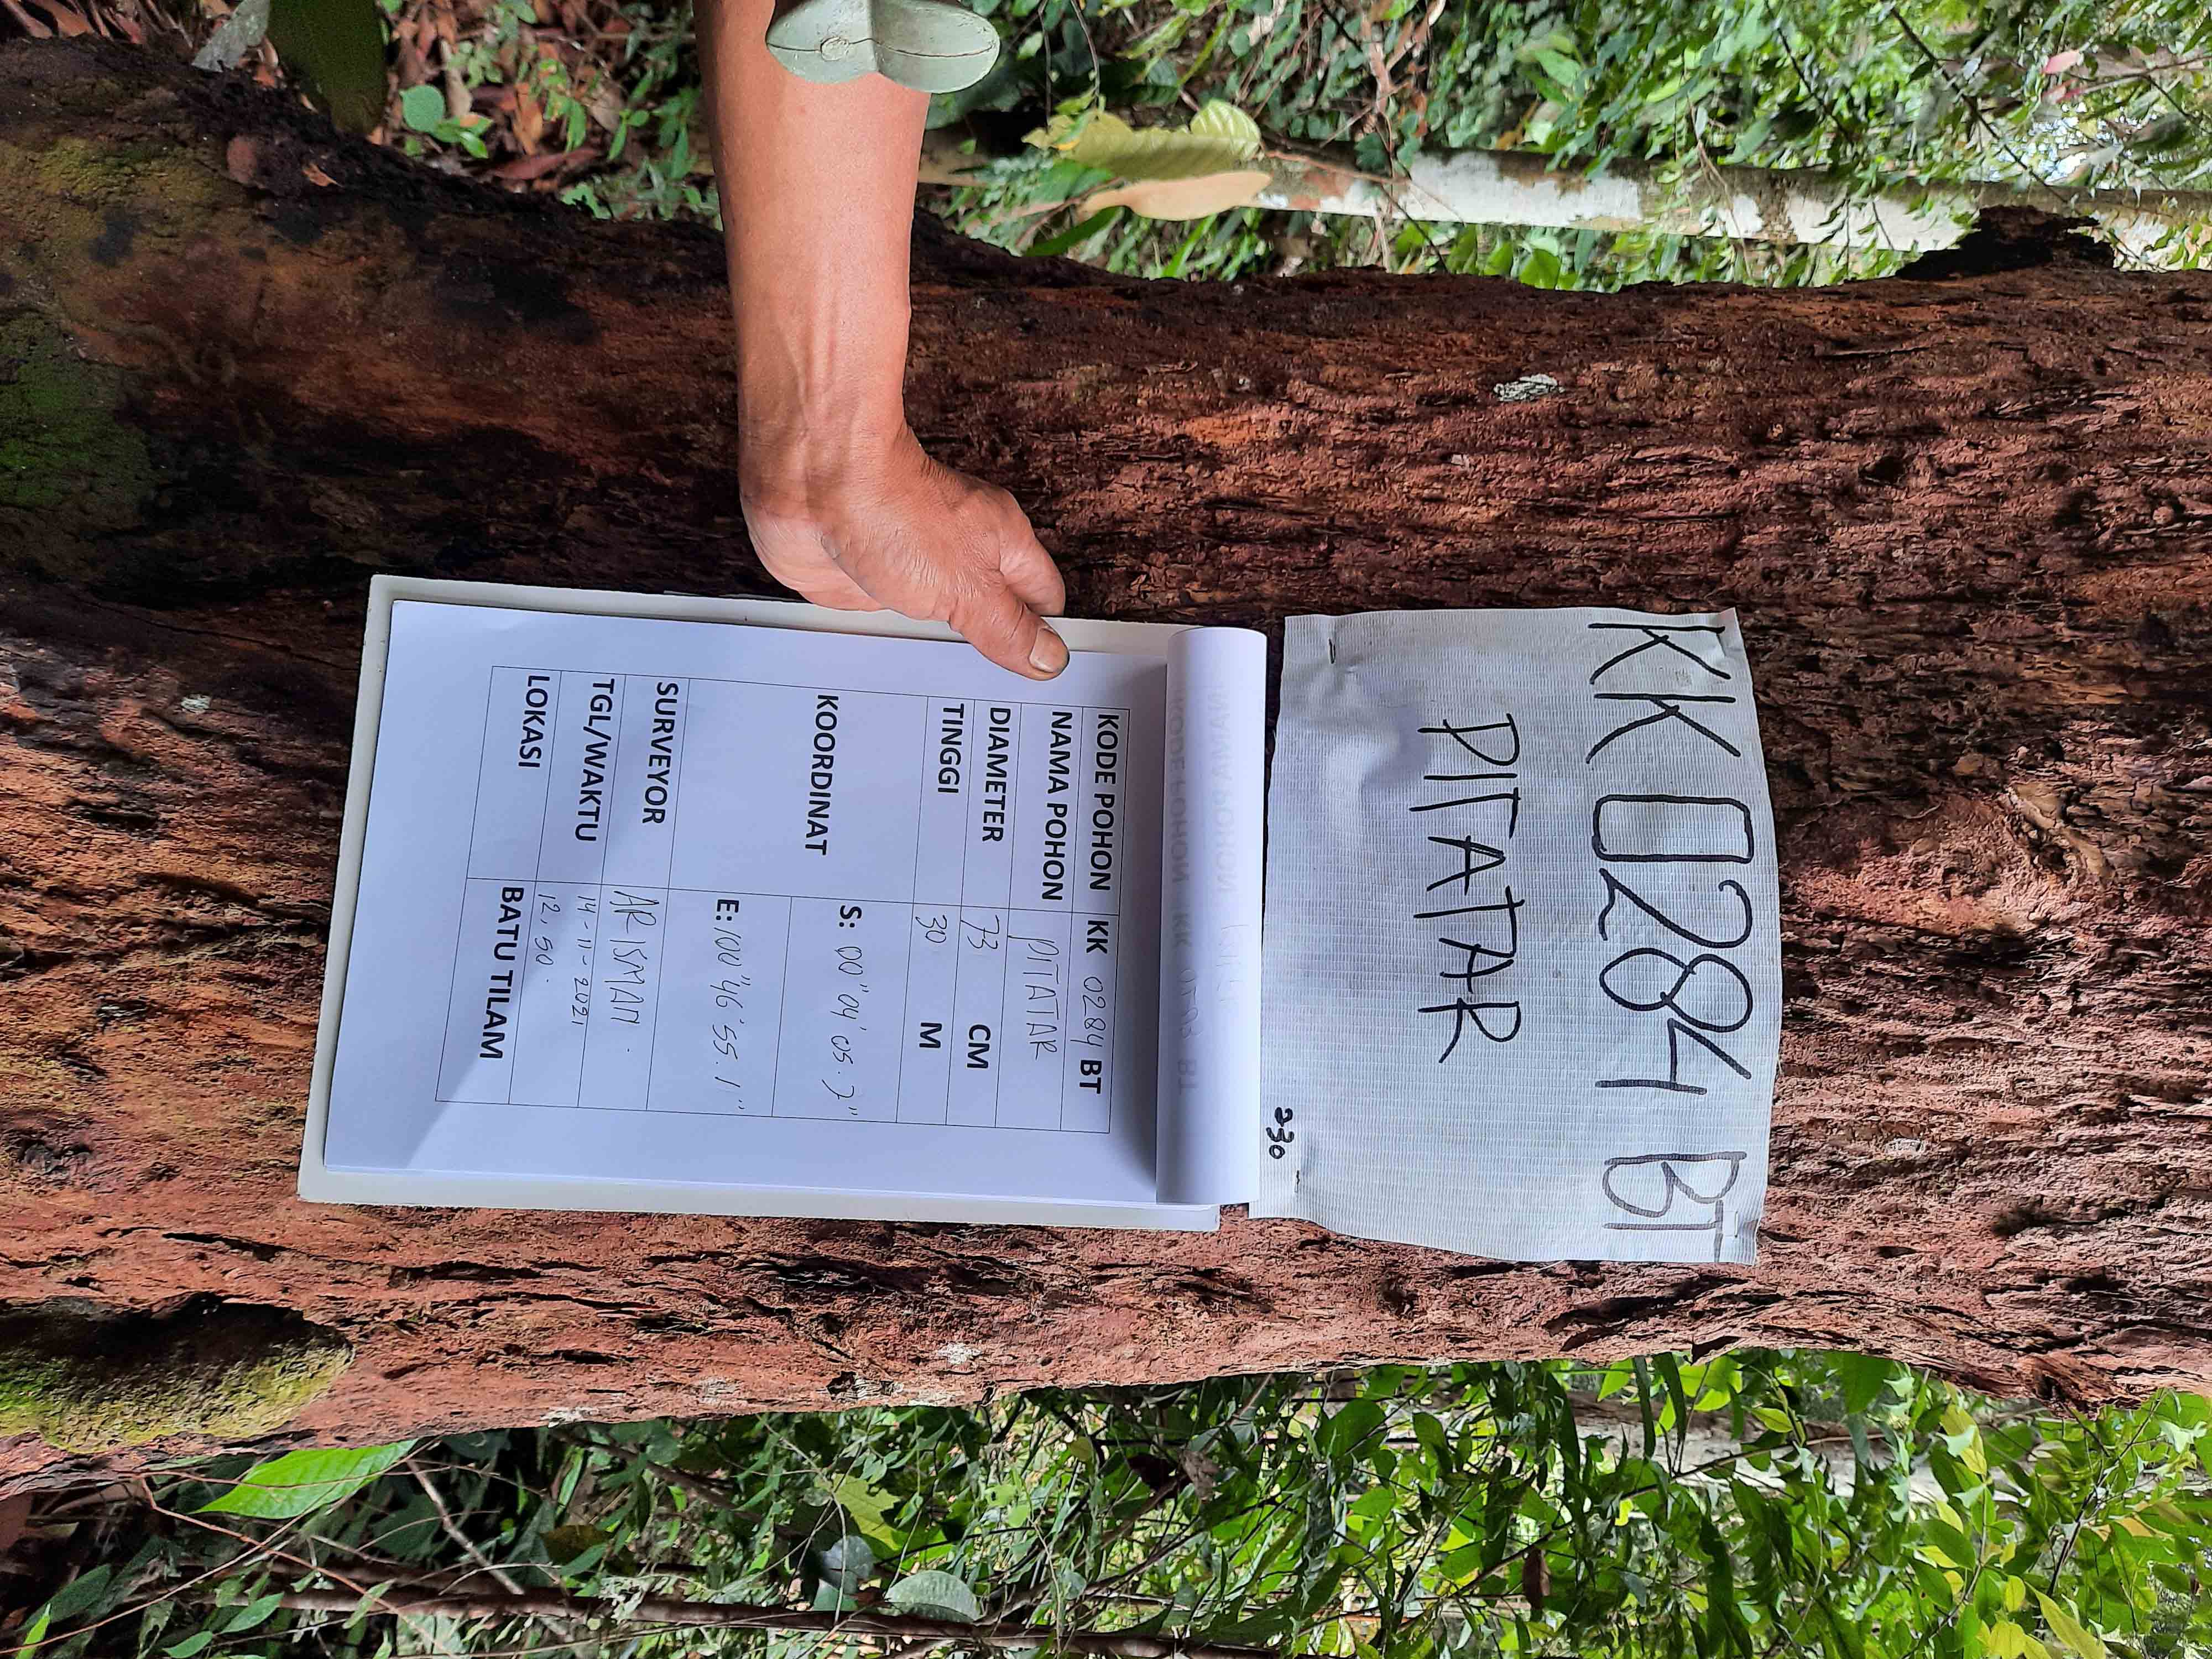 KK 0284 BT
PITATAR
230
KODE POHON KK 0284 BT
NAMA POHON PITATAR
DIAMETER 73 CM
TINGGI 30 M
KOORDINAT
S: 00" 04' 05.7"
E: 100" 46' 55.1"
SURVEYOR ARISMAN.
TGL/WAKTU 14-11-2021
12,50.
LOKASI BATU TILAM